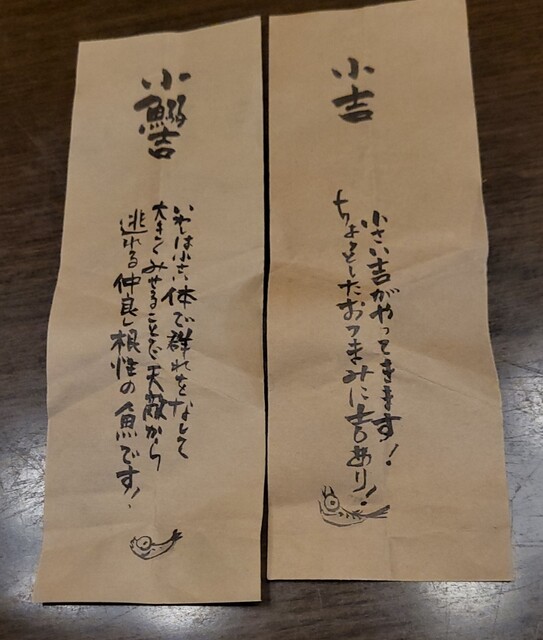 小吉
小さい吉がやってきます!
ちょっとしたおつまみに吉あり!
小鰯吉
いわしは小さい体で群れをなして
大きくみせることで天敵から
逃れる仲良し根性の魚です!